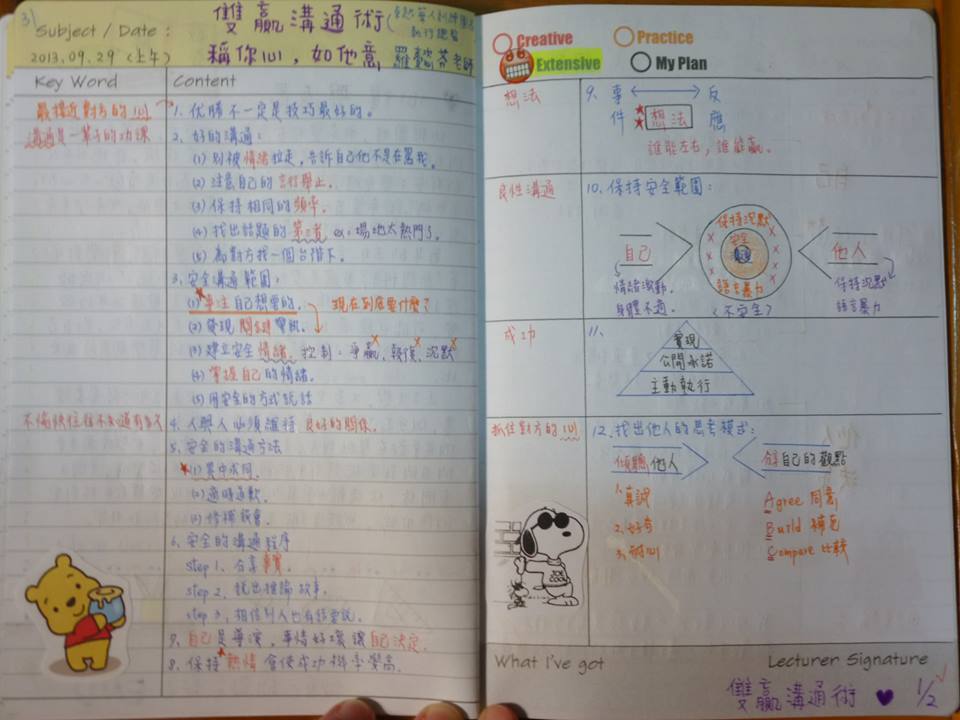 3)
Subject / Date :
2013.09.29 (上午)
雙贏溝通術
執行總監
稱你心, 如他意 羅懿芬老師
Key Word Content
最接近對方的心
溝通是一輩子的功課
1. 優勝不一定是技巧最好的。
2. 好的溝通:
(1) 別被情緒拉走, 告訴自己他不是在罵我。
(2) 注意自己的言行舉止。
(3) 保持相同的頻率。
(4) 找出話題的第三者, ex: 場地太熱門了。
(5) 為對方找一個台階下。
3. 安全溝通範圍:
(1) 專注自己想要的。 現在到底要什麼?
(2) 發現關鍵
(3) 建立安全情緒, 控制: 爭贏、報復、沉默
(4) 掌握自己的情緒。
(5) 用安全的方式說話
不愉快往往不知道有多久
4. 人與人必須維持良好的關係。
5. 安全的溝通方法
(1) 異中求同。
(2) 適時道歉。
(3) 修補誤會。
6. 安全的溝通程序
step 1. 分享事實。
step 2. 說出推論故事。
step 3. 相信別人也有話要說。
7. 自己是導演, 事情好壞讓自己決定。
8. 保持熱情會使成功機率變高。
Creative Practice
Extensive My Plan
想法
9. 事 反
件 想法 應
誰能左右, 誰能贏。
良性溝通
10. 保持安全範圍:
保持沉默
安全
語言暴力
自己
他人
情緒激動。
身體不適。
<不安全>
保持沉默
語言暴力
成功
11.
實現
公開承諾
主動執行
抓住對方的心
12. 找出他人的思考模式:
傾聽他人
分享自己的觀點
1. 真誠
2. 好奇
3. 耐心
Agree 同意
Build 補充
Compare 比較
JOE COOL
What I've got Lecturer Signature
雙贏溝通術 1/2